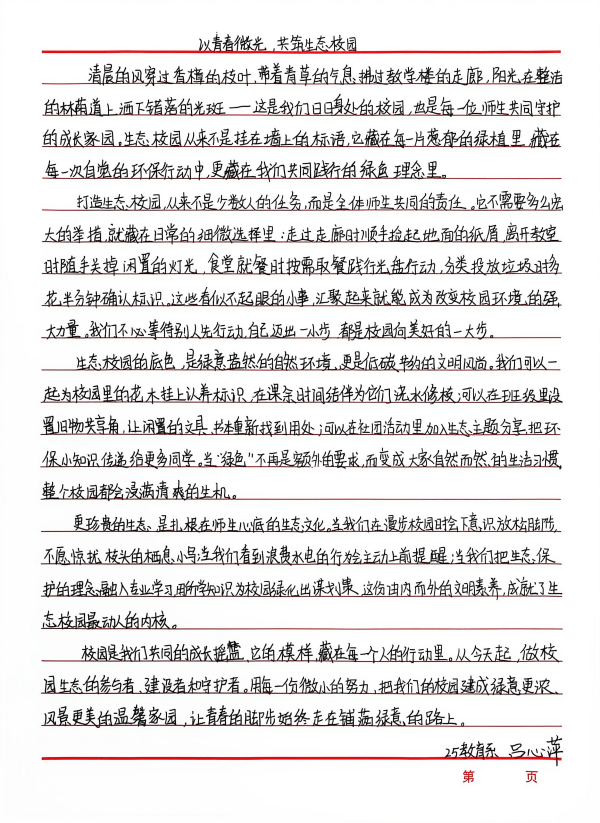 以青春微光，共筑生态校园
清晨的风穿过香樟的枝叶，带着青草的气息拂过教学楼的走廊，阳光在整洁
的林荫道上洒下错落的光斑——这是我们日日身处的校园，也是每一位师生共同守护
的成长家园。生态校园从来不是挂在墙上的标语，它藏在每一片葱郁的绿植里，藏在
每一次自觉的环保行动中，更藏在我们共同践行的绿色理念里。
打造生态校园，从来不是少数人的任务，而是全体师生共同的责任。它不需要多么宏
大的举措，就藏在日常的细微选择里：走过走廊时顺手捡起地面的纸屑，离开教室
时随手关掉闲置的灯光，食堂就餐时按需取餐践行光盘行动，分类投放垃圾时多
花半分钟确认标识，这些看似不起眼的小事，汇聚起来就能成为改变校园环境的强
大力量。我们不必等待别人先行动，自己迈出一小步，都是校园向美好的一大步。
生态校园的底色，是绿意盎然的自然环境，更是低碳节约的文明风尚。我们可以一
起为校园里的花木挂上认养标识，在课余时间结伴为它们浇水修枝；可以在班级里设
置旧物共享角，让闲置的文具、书本重新找到用处；可以在社团活动里加入生态主题分享，把环
保小知识传递给更多同学。当“绿色”不再是额外的要求，而变成大家自然而然的生活习惯，
整个校园都会浸满清爽的生机。
更珍贵的生态，是扎根在师生心底的生态文化。当我们在漫步校园时会下意识放松脚步，
不愿惊扰枝头的栖息小鸟；当我们看到浪费水电的行为会主动上前提醒；当我们把生态保
护的理念融入专业学习，用所学知识为校园绿化出谋划策，这份由内而外的文明素养，成就了生
态校园最动人的内核。
校园是我们共同的成长摇篮，它的模样，藏在每一个人的行动里。从今天起，做校
园生态的参与者、建设者和守护者。用每一份微小的努力，把我们的校园建成绿意更浓、
风景更美的温馨家园，让青春的脚步始终走在铺满绿意的路上。
25教育系 吕心萍
第 页